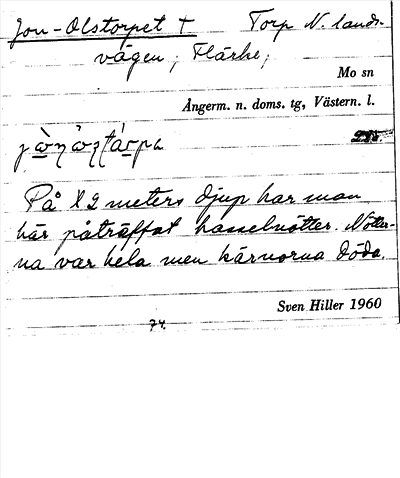 Jon-Olstorpet † Torp N. lands-
vägen, Flärke,
Mo sn
Ångerm. n. doms. tg, Västern. l.
På 1 2 meters djup har man
här påträffat hasselnötter. Nötter-
na var hela men kärnorna döda.
Sven Hiller 1960
74.